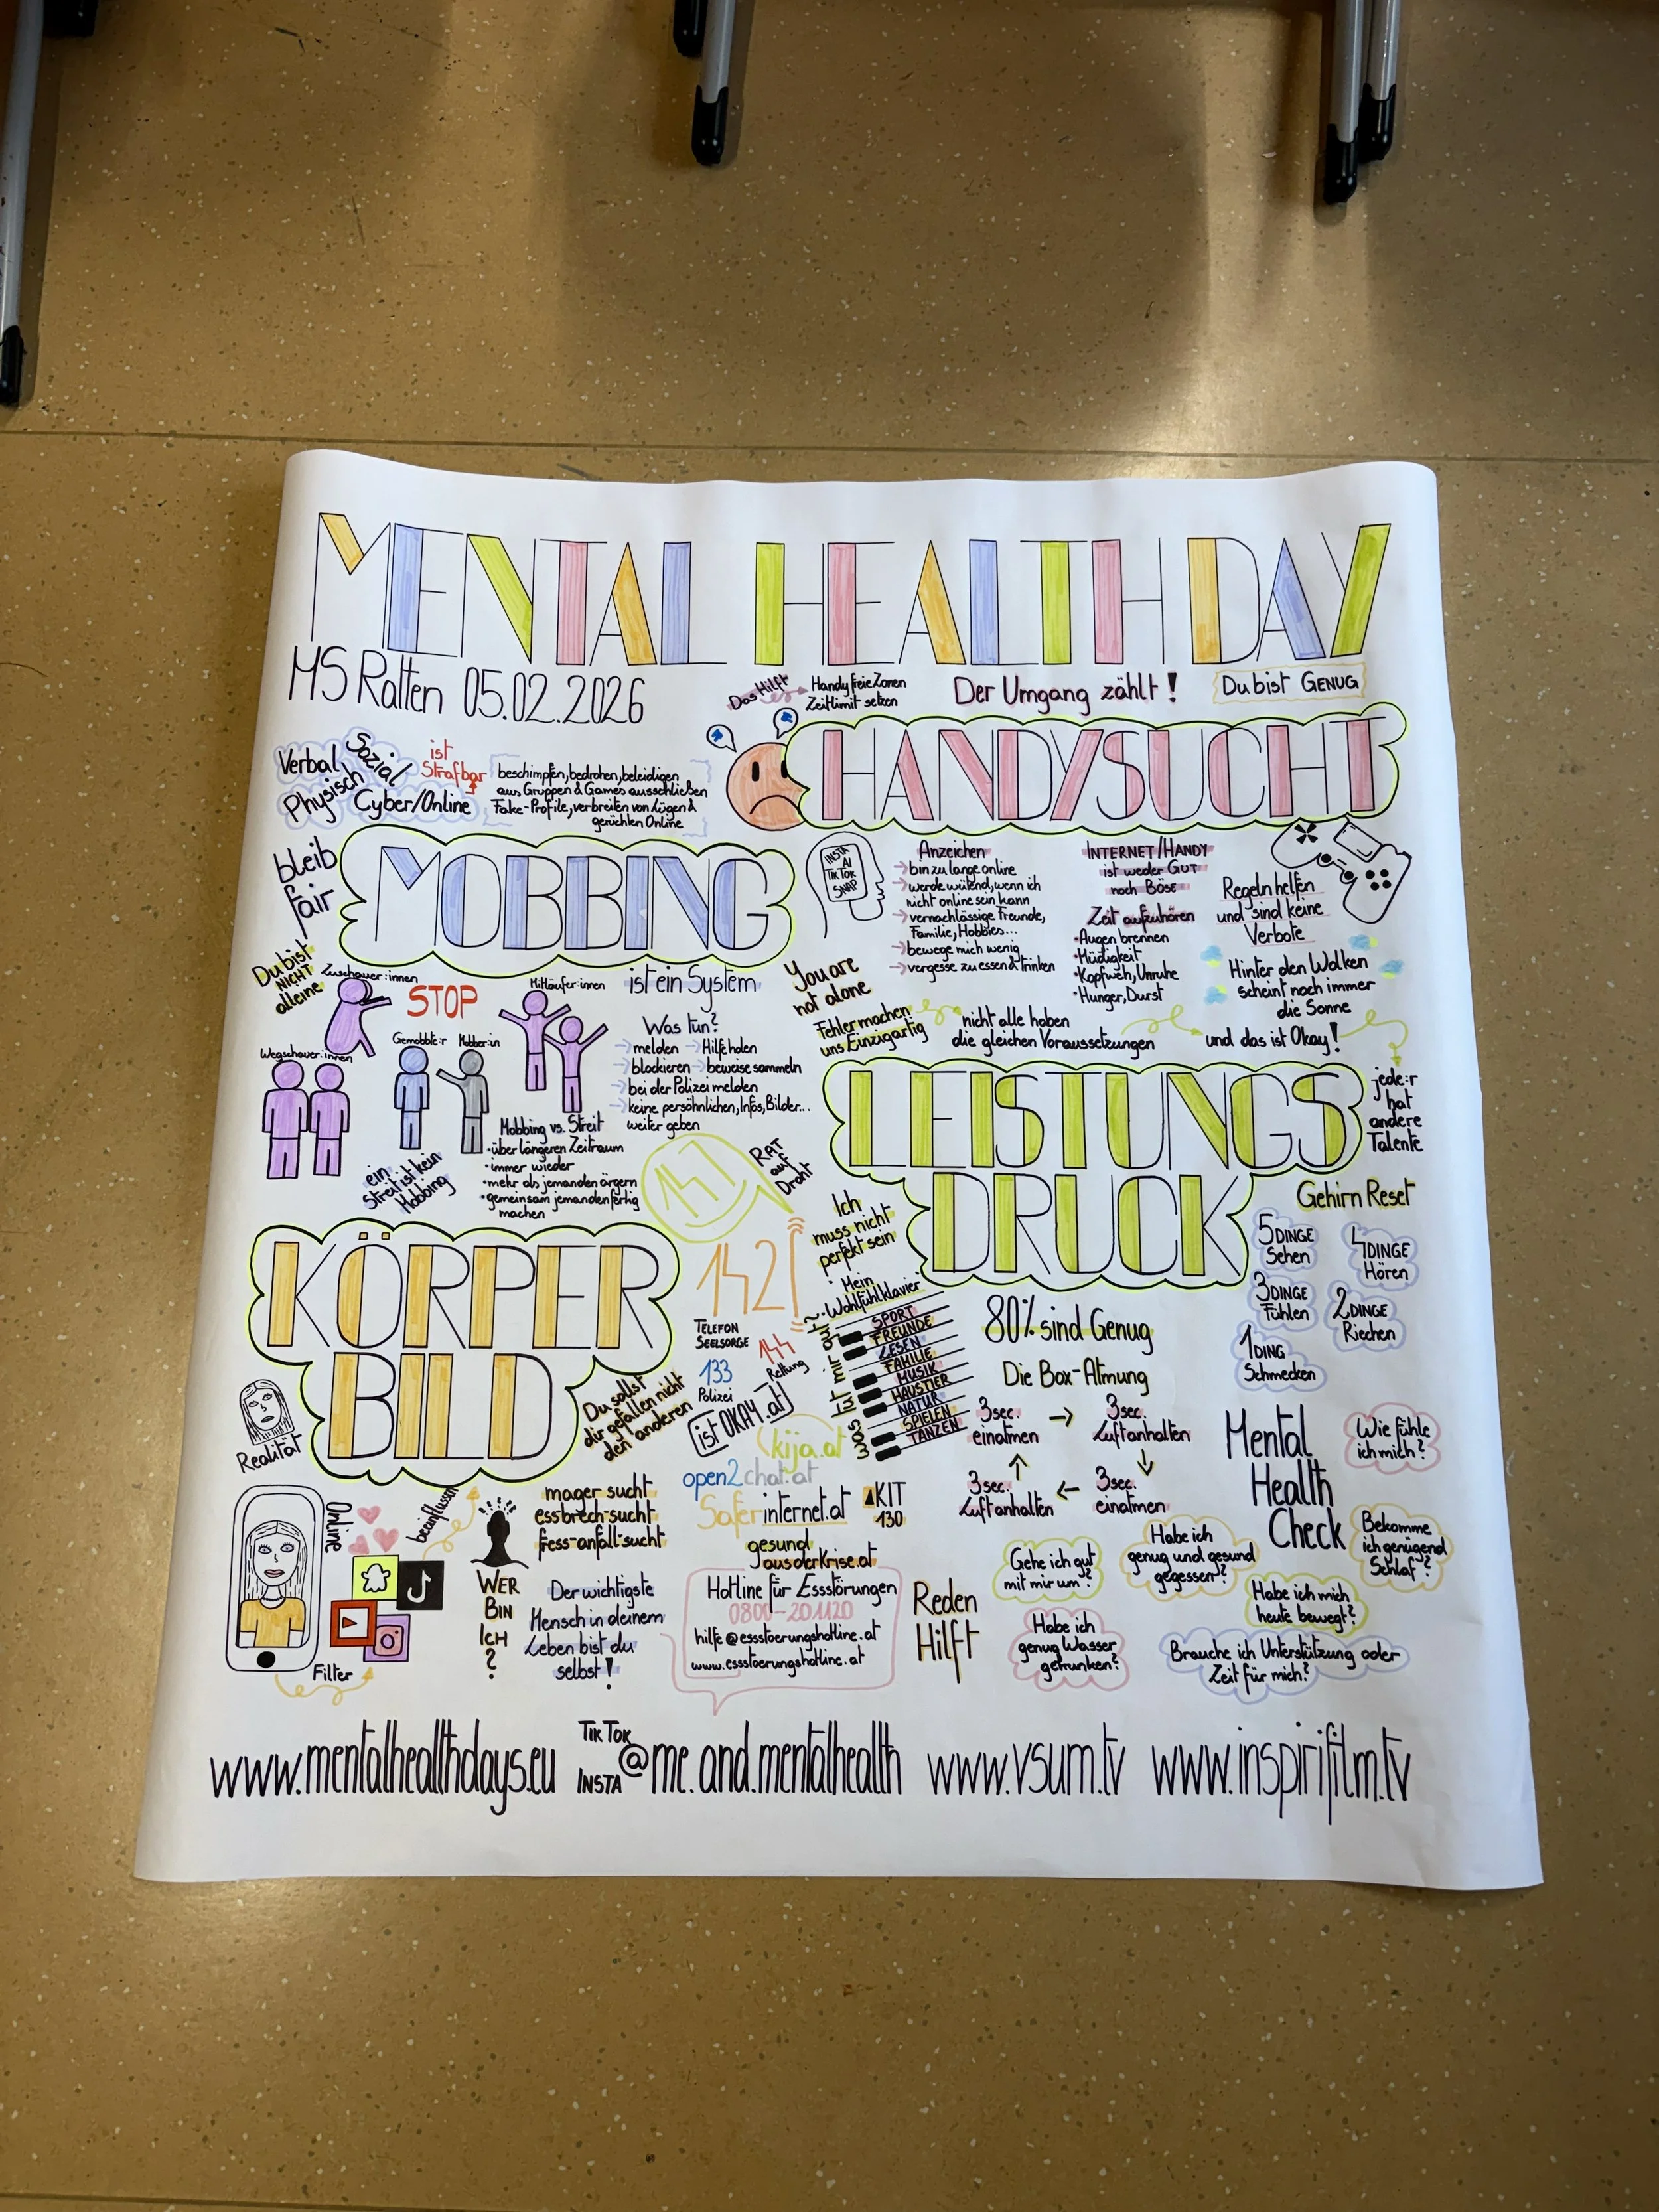 MENTAL HEALTH DAY
MS Ratten 05.02.2026
Das Hilft
Handyfreie Zonen
Zeitlimit setzen
Der Umgang zählt!
Du bist GENUG
HANDYSUCHT
Verbal
Sozial
Physisch
Cyber/Online
ist
Strafbar
beschimpfen, bedrohen, beleidigen
aus Gruppen & Games ausschließen
Fake-Profile, verbreiten von Lügen &
gerüchten Online
bleib
fair
MOBBING
ist ein System
Du bist
NICHT
alleine
Zuschauer:innen
STOP
Mitläufer:innen
Wegschauer:innen
Gemobbte:r
Mobber:in
Was tun?
melden
Hilfe holen
blockieren
beweise sammeln
bei der Polizei melden
keine persöhnlichen, Infos, Bilder...
weiter geben
Mobbing vs. Streit
• über längeren Zeitraum
• immer wieder
• mehr als jemanden ärgern
• gemeinsam jemanden fertig
machen
ein
Streit ist kein
Mobbing
INSTA
AI
TIKTOK
SNAP
Anzeichen
bin zu lange online
werde wütend, wenn ich
nicht online sein kann
vernachlässige Freunde,
Familie, Hobbies...
bewege mich wenig
vergesse zu essen & trinken
INTERNET/HANDY
ist weder GUT
noch BÖSE
Zeit aufzuhören
• Augen brennen
• Müdigkeit
• Kopfweh, Unruhe
• Hunger, Durst
Regeln helfen
und sind keine
Verbote
Hinter den Wolken
scheint noch immer
die Sonne
You are
not alone
Fehler machen
uns Einzigartig
nicht alle haben
die gleichen Voraussetzungen
und das ist Okay!
jede:r
hat
andere
Talente
LEISTUNGS
DRUCK
147
RAT
auf
Draht
142
TELEFON
SEELSORGE
133
Polizei
144
Rettung
ist OKAY.at
kija.at
open2chat.at
Saferinternet.at
KIT
130
gesund
ausderkrise.at
Hotline für Essstörungen
0800-201120
hilfe@essstoerungshotline.at
www.essstoerungshotline.at
Ich
muss nicht
perfekt sein
Mein
Wohlfühlklavier
Was tut mir gut?
SPORT
FREUNDE
LESEN
FAMILIE
MUSIK
HAUSTIER
NATUR
SPIELEN
TANZEN
80% sind Genug
Die Box-Atmung
3sec.
einatmen
3sec.
Luft anhalten
3sec.
Luft anhalten
3sec.
einatmen
Gehirn Reset
5 DINGE
Sehen
4 DINGE
Hören
3 DINGE
Fühlen
2 DINGE
Riechen
1 DING
Schmecken
KÖRPER
BILD
Du sollst
dir gefallen nicht
den anderen
Realität
Online
beeinflussen
Filter
WER
BIN
ICH
?
mager sucht
essbrech-sucht
fess-anfall-sucht
Der wichtigste
Mensch in deinem
Leben bist du
selbst!
Reden
Hilft
Mental
Health
Check
Wie fühle
ich mich?
Bekomme
ich genügend
Schlaf?
Habe ich
genug und gesund
gegessen?
Gehe ich gut
mit mir um?
Habe ich mich
heute bewegt?
Habe ich
genug Wasser
getrunken?
Brauche ich Unterstützung oder
Zeit für mich?
www.mentalhealthdays.eu
TIKTOK
INSTA
@me.and.mentalhealth
www.vsum.tv
www.inspirifilm.tv